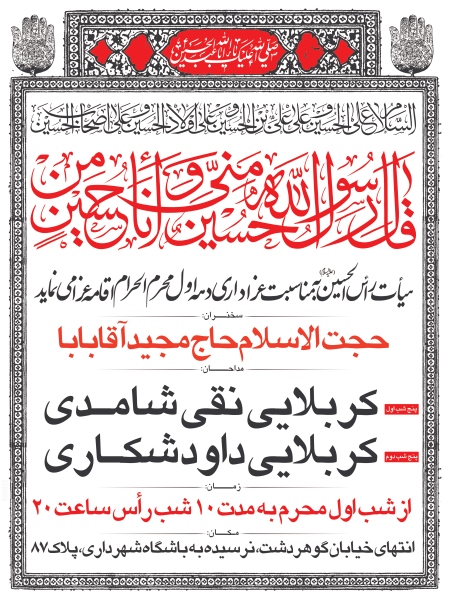 صلی الله علیک یا اباعبدالله الحسین
السلام علی الحسین و علی علی بن الحسین و علی اولاد الحسین و علی اصحاب الحسین
قال رسول الله حسین منی و أنا من حسین
هیأت رأس الحسین بمناسبت عزاداری دهه اول محرم الحرام اقامه عزا می نماید
سخنران:
حجت الاسلام حاج مجید آقابابا
مداحان:
پنج شب اول کربلایی نقی شامدی
پنج شب دوم کربلایی داود شکاری
زمان:
از شب اول محرم به مدت ۱۰ شب رأس ساعت ۲۰
مکان:
انتهای خیابان گوهردشت، نرسیده به باشگاه شهرداری، پلاک ۸۷